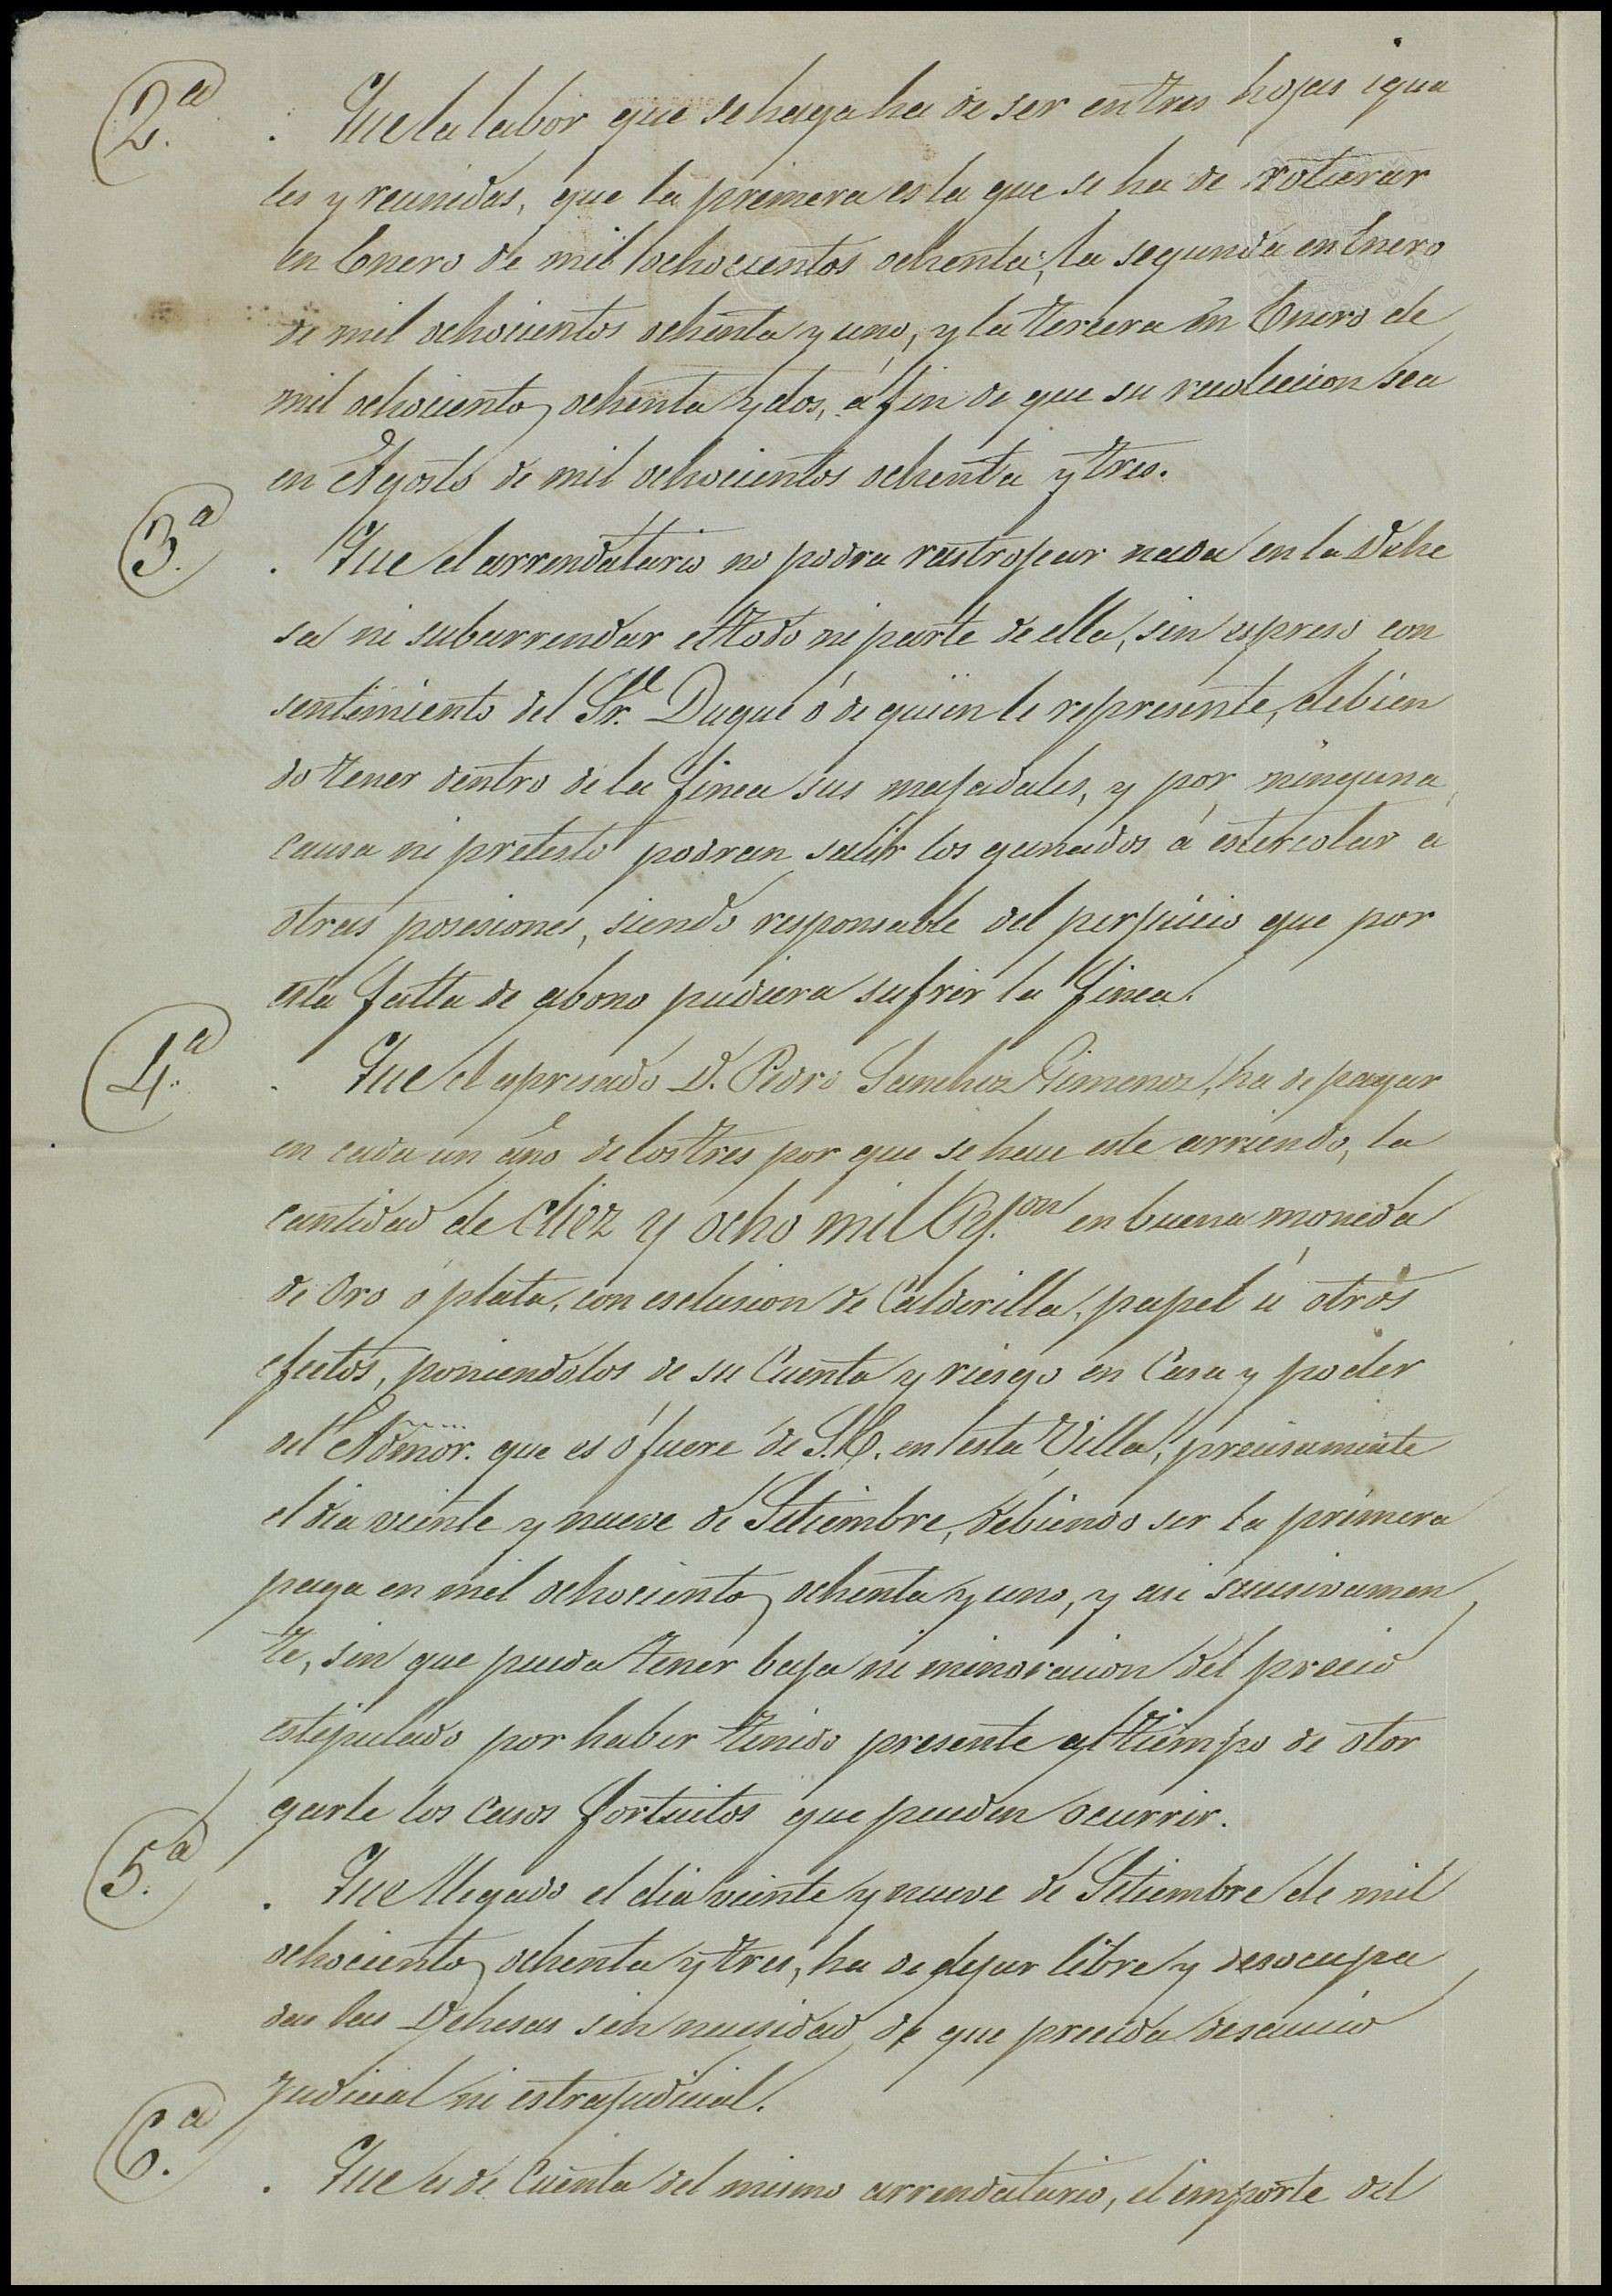 2.ª . Que la labor que se haga ha de ser en tres hojas igua
les y reunidas, que la primera es la que se ha de roturar
en Enero de mil ochocientos ochenta, la segunda en Enero
de mil ochocientos ochenta y uno, y la tercera en Enero de
mil ochocientos ochenta y dos, á fin de que su recoleccion sea
en Agosto de mil ochocientos ochenta y tres.
3.ª . Que el arrendatario no podra rastrojear nada en la Dehe
sa ni subarrendar el todo ni parte de ella, sin espreso con
sentimiento del Sr. Duque ó de quien le represente, debien
do tener dentro de la finca sus majadales, y por ninguna
causa ni pretesto podran salir los ganados á estercolar a
otras posesiones, siendo responsable del perjuicio que por
esta falta de abono pudiera sufrir la finca.
4.ª . Que el espresado D. Pedro Sanchez Gimenez, ha de pagar
en cada un año de los tres por que se hace este arriendo, la
cantidad de diez y ocho mil R.ˢ ᵒⁿ en buena moneda
de Oro ó plata, con esclusion de Calderilla, papel ú otros
efectos, poniendolos de su Cuenta y riesgo en Casa y poder
del Admor. que es ó fuere de S.E. en esta Villa, precisamente
el dia veinte y nueve de Setiembre, debiendo ser la primera
paga en mil ochocientos ochenta y uno, y asi sucesivamen
te, sin que pueda tener baja ni minoracion del precio
estipulado por haber tenido presente al tiempo de otor
garle los casos fortuitos que pueden ocurrir.
5.ª . Que llegado el dia veinte y nueve de Setiembre de mil
ochocientos ochenta y tres, ha de dejar libre y desocupa
das las Dehesas sin necesidad de que preceda desaucio
judicial ni estrajudicial.
6.ª . Que es de Cuenta del mismo arrendatario, el importe del